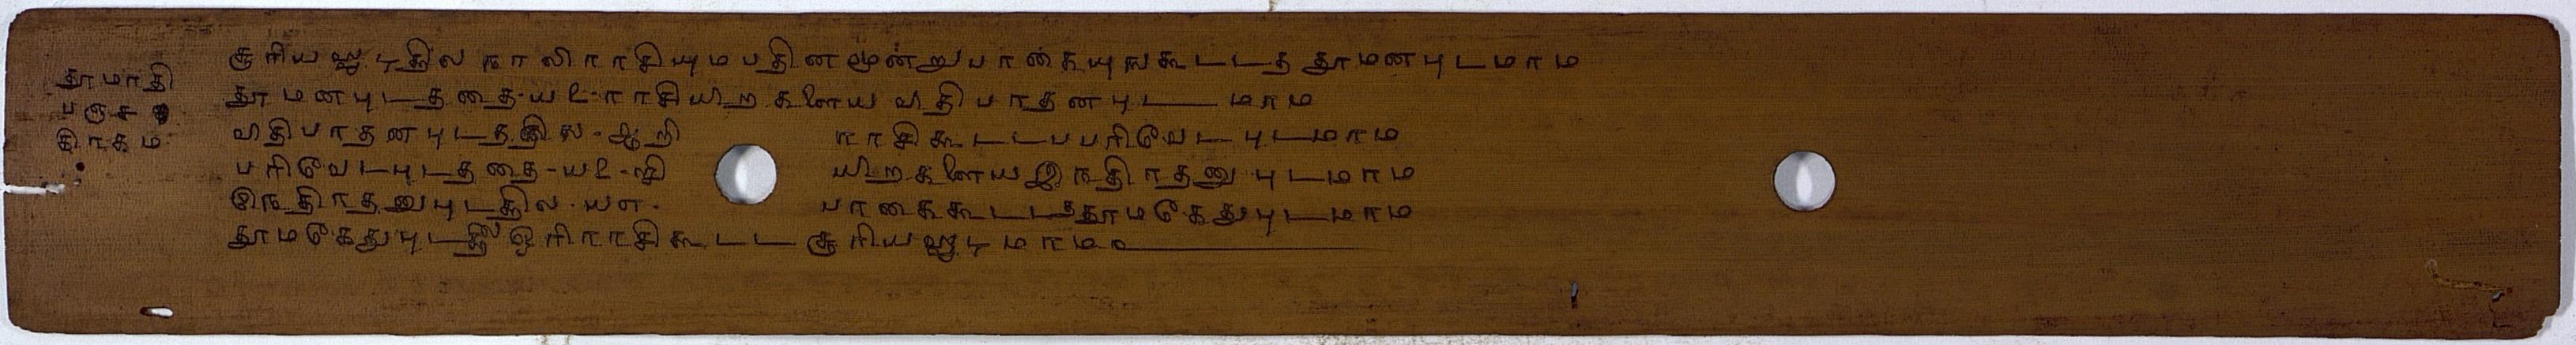 தூமாதி
பஞச
கிரகம
சூரிய ஸ்புடத்தில நாலிராசியுமபதினமூன்றுபாகையுஙகூடடத தூமனபுடமாம
தூமனபுடததை-யஉ-ராசியிறகளைய விதிபாதனபுடமாம
விதிபாதனபுடததில-ஆறி ராசிகூடடபபரிவேடபுடமாம
பரிவேடபுடததை-யஉ-றி யிறகளையஇநதிரதனுபுடமாம
இநதிரதனுபுடத்தில-யஎ- பாகைகூடடததூமகேதுபுடமாம
தூமகேதுபுடத்தில ஒரிராசிகூடட சூரியஸ்புடமாம